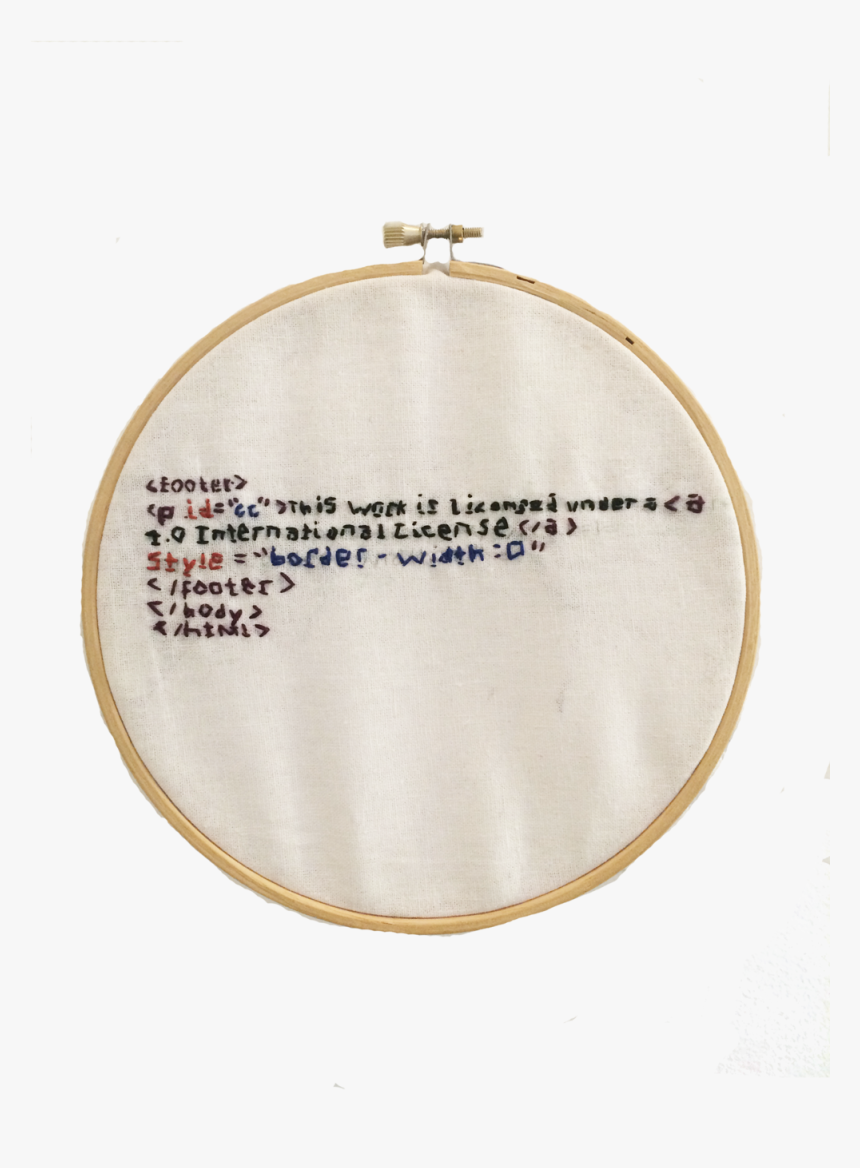 <footer>
<p id="cc">This work is licensed under a <a
4.0 International License </a>
Style = "border - width : 0"
</footer>
</body>
</html>